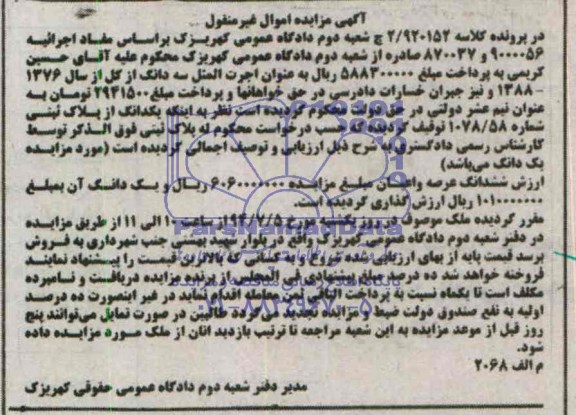 آگهی مزایده اموال غیرمنقول
در پرونده کلاسه ۲/۹۲۰۱۵۲ ج شعبه دوم دادگاه عمومی کهریزک براساس مفاد اجرائیه
۹۰۰۰۰۵۶ و ۸۷۰۰۳۷ صادره از شعبه دوم دادگاه عمومی کهریزک محکوم علیه آقای حسین
کریمی به پرداخت مبلغ ۵۸۸۳۰۰۰۰۰ ریال به عنوان اجرت المثل سه دانگ از کل از سال ۱۳۷۶
- ۱۳۸۸ و نیز جبران خسارات دادرسی در حق خواهانها و پرداخت مبلغ ۲۹۴۱۵۰۰ تومان به
عنوان نیم عشر دولتی در حق دولت محکوم گردیده است نظر به اینکه یکدانگ از پلاک ثبتی
شماره ۱۰۷۸/۵۸ توقیف گردیده که حسب درخواست محکوم له پلاک ثبتی فوق الذکر توسط
کارشناس رسمی دادگستری به شرح ذیل ارزیابی و توصیف اجمالی گردیده است (مورد مزایده
یک دانگ می‌باشد)
ارزش ششدانگ عرصه واعیان مبلغ مزایده ۶۰۶۰۰۰۰۰۰۰ ریال و یک دانگ آن بمبلغ
۱۰۱۰۰۰۰۰۰۰ ریال ارزش گذاری گردیده است.
مقرر گردیده ملک موصوف در روز یکشنبه مورخ ۹۴/۷/۵ از ساعت ۱۰ الی ۱۱ از طریق مزایده
در دفتر شعبه دوم دادگاه عمومی کهریزک واقع در بلوار شهید بهشتی جنب شهرداری به فروش
برسد قیمت پایه از بهای ارزیابی شده شروع و به کسانی که بالاترین قیمت را پیشنهاد نمایند
فروخته خواهد شد ده درصد مبلغ پیشنهادی فی المجلس از برنده مزایده دریافت و نامبرده
مکلف است تا یکماه نسبت به پرداخت الباقی ثمن معامله اقدام نماید در غیر اینصورت ده درصد
اولیه به نفع صندوق دولت ضبط و مزایده تجدید می‌گردد طالبین در صورت تمایل می‌توانند پنج
روز قبل از موعد مزایده به این شعبه مراجعه تا ترتیب بازدید آنان از ملک مورد مزایده داده
شود.
م الف ۲۰۶۸
مدیر دفتر شعبه دوم دادگاه عمومی حقوقی کهریزک
ParsNamadData